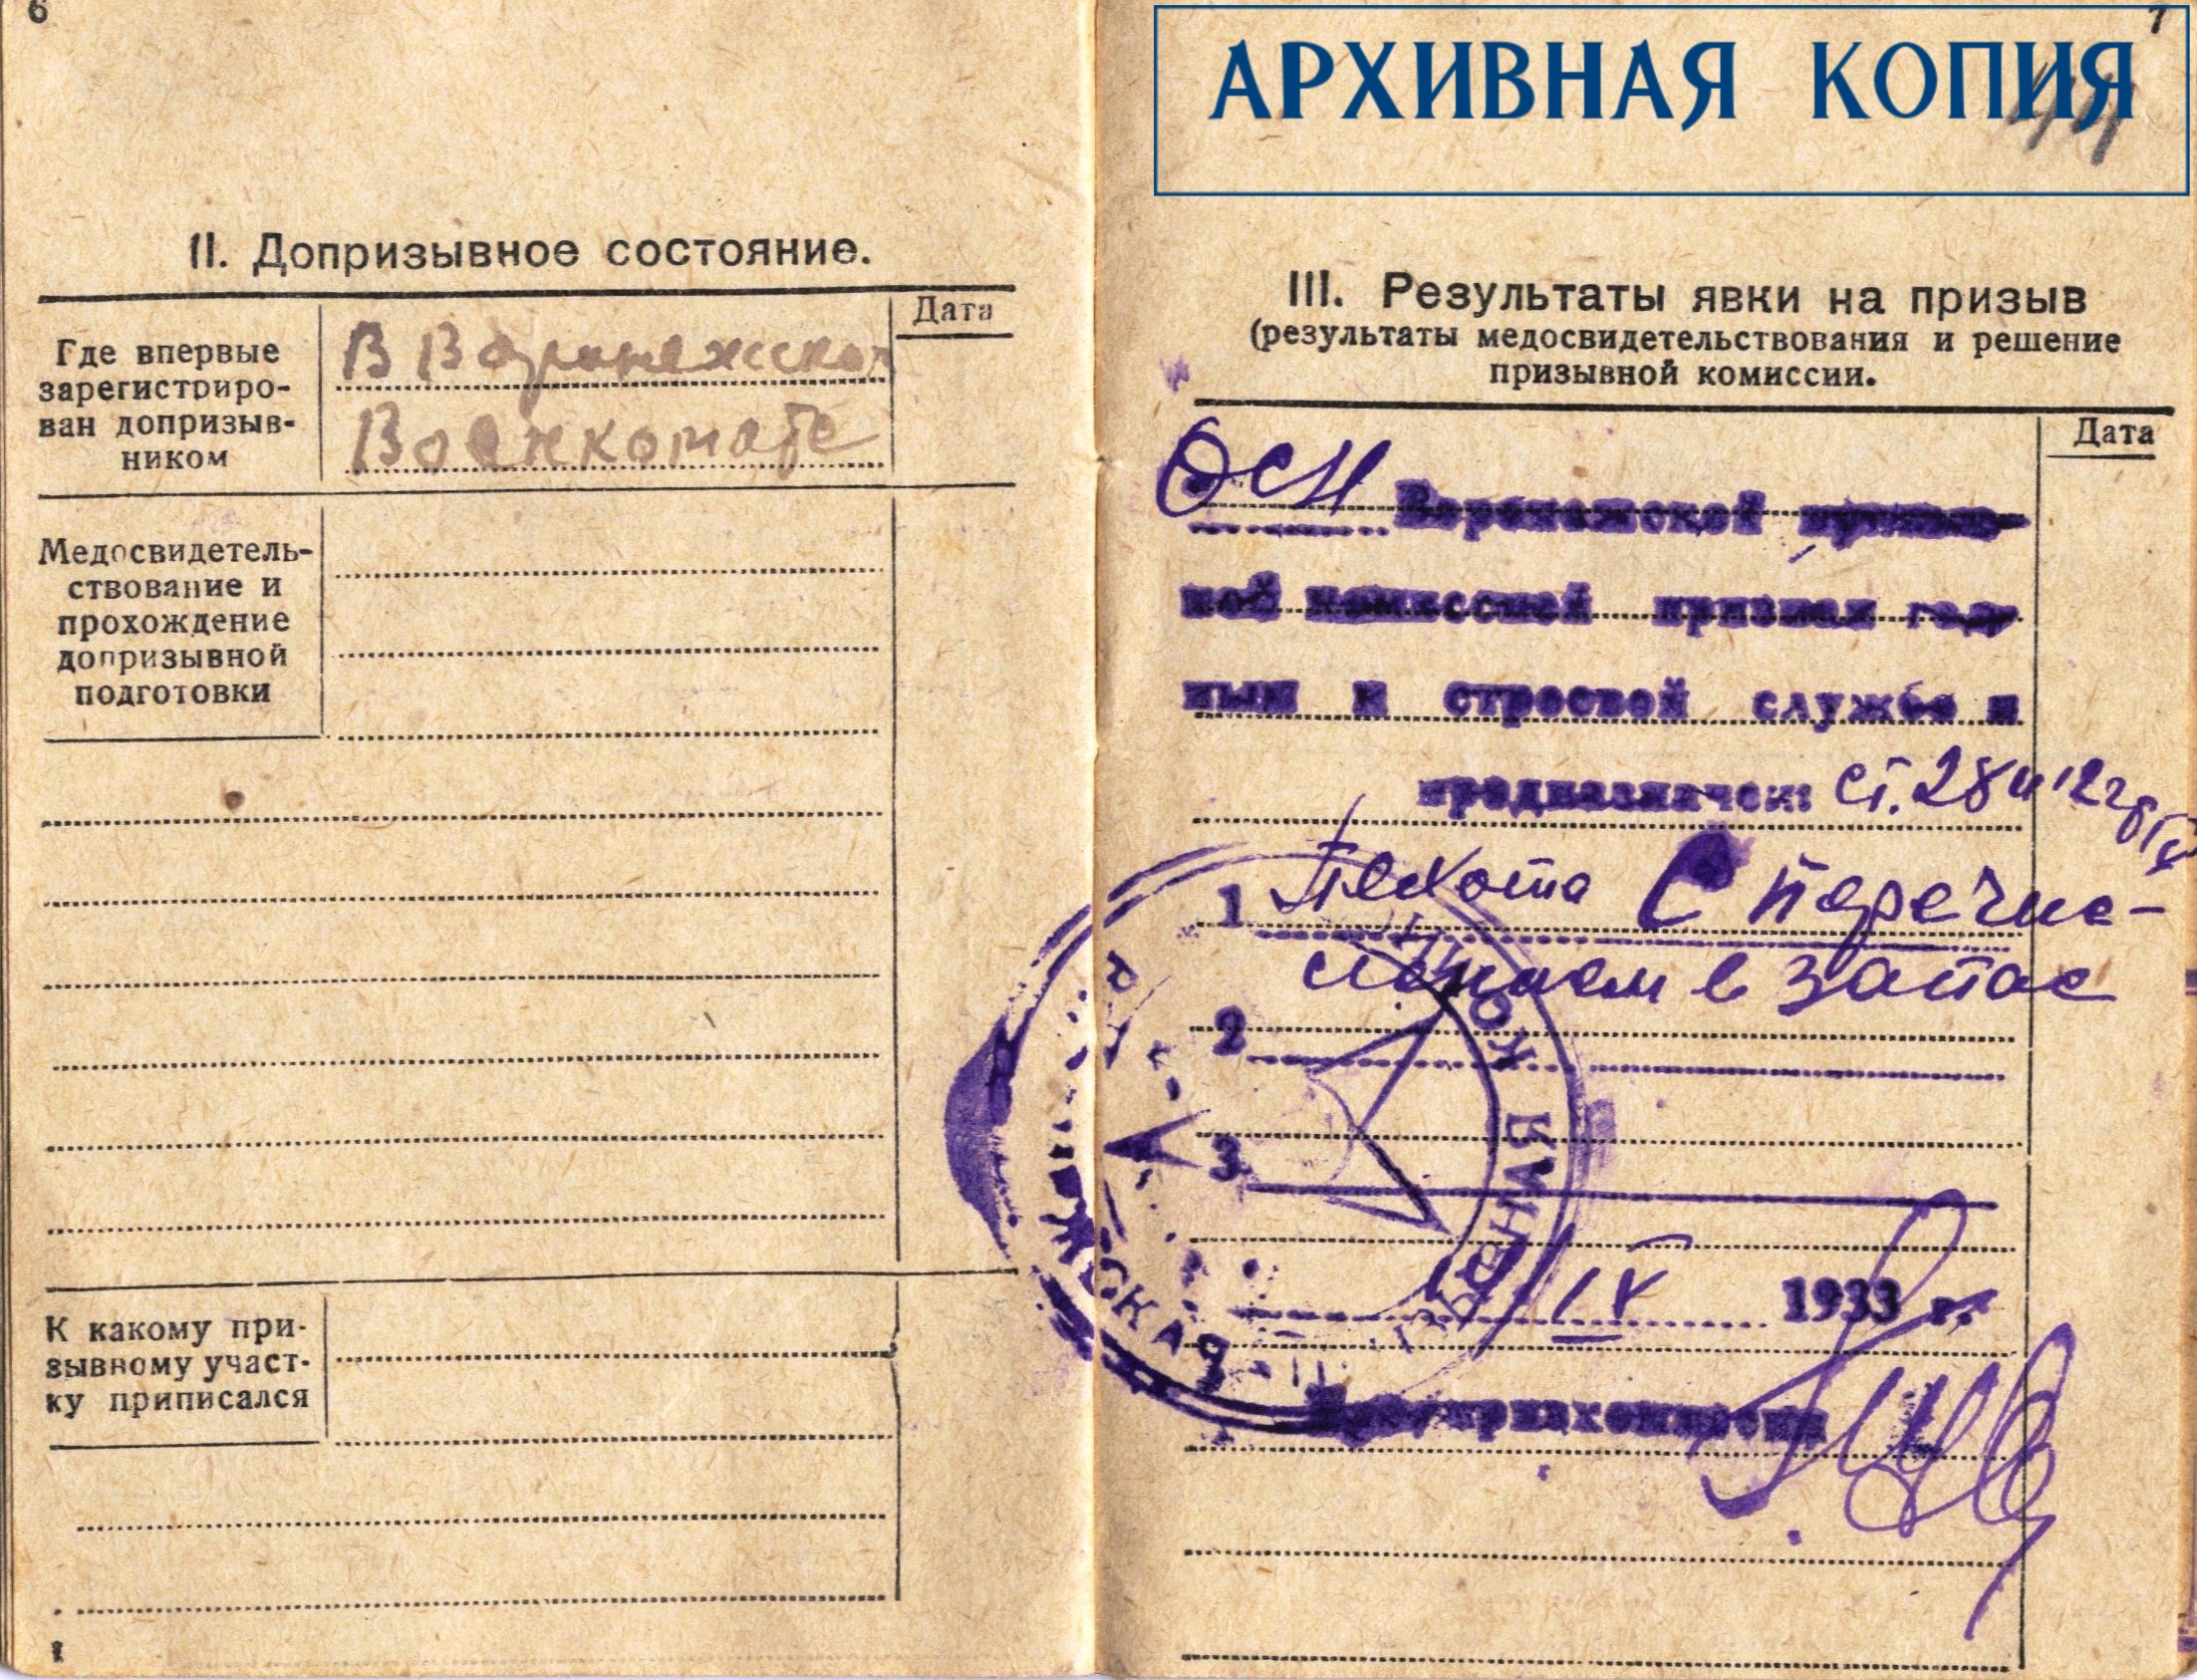 6
II. Допризывное состояние.
Дата
Где впервые
зарегистриро-
ван допризыв-
ником
В Воронежском
Военкомате
Медосвидетель-
ствование и
прохождение
допризывной
подготовки
К какому при-
зывному участ-
ку приписался
7
АРХИВНАЯ КОПИЯ
44
III. Результаты явки на призыв
(результаты медосвидетельствования и решение
призывной комиссии.
Дата
Воронежской
ной комиссией признан год-
ным к строевой службе и
предназначен: ст. 28
1 Пехота С перечис-
лением в запас
2
3
IX 1933 г.